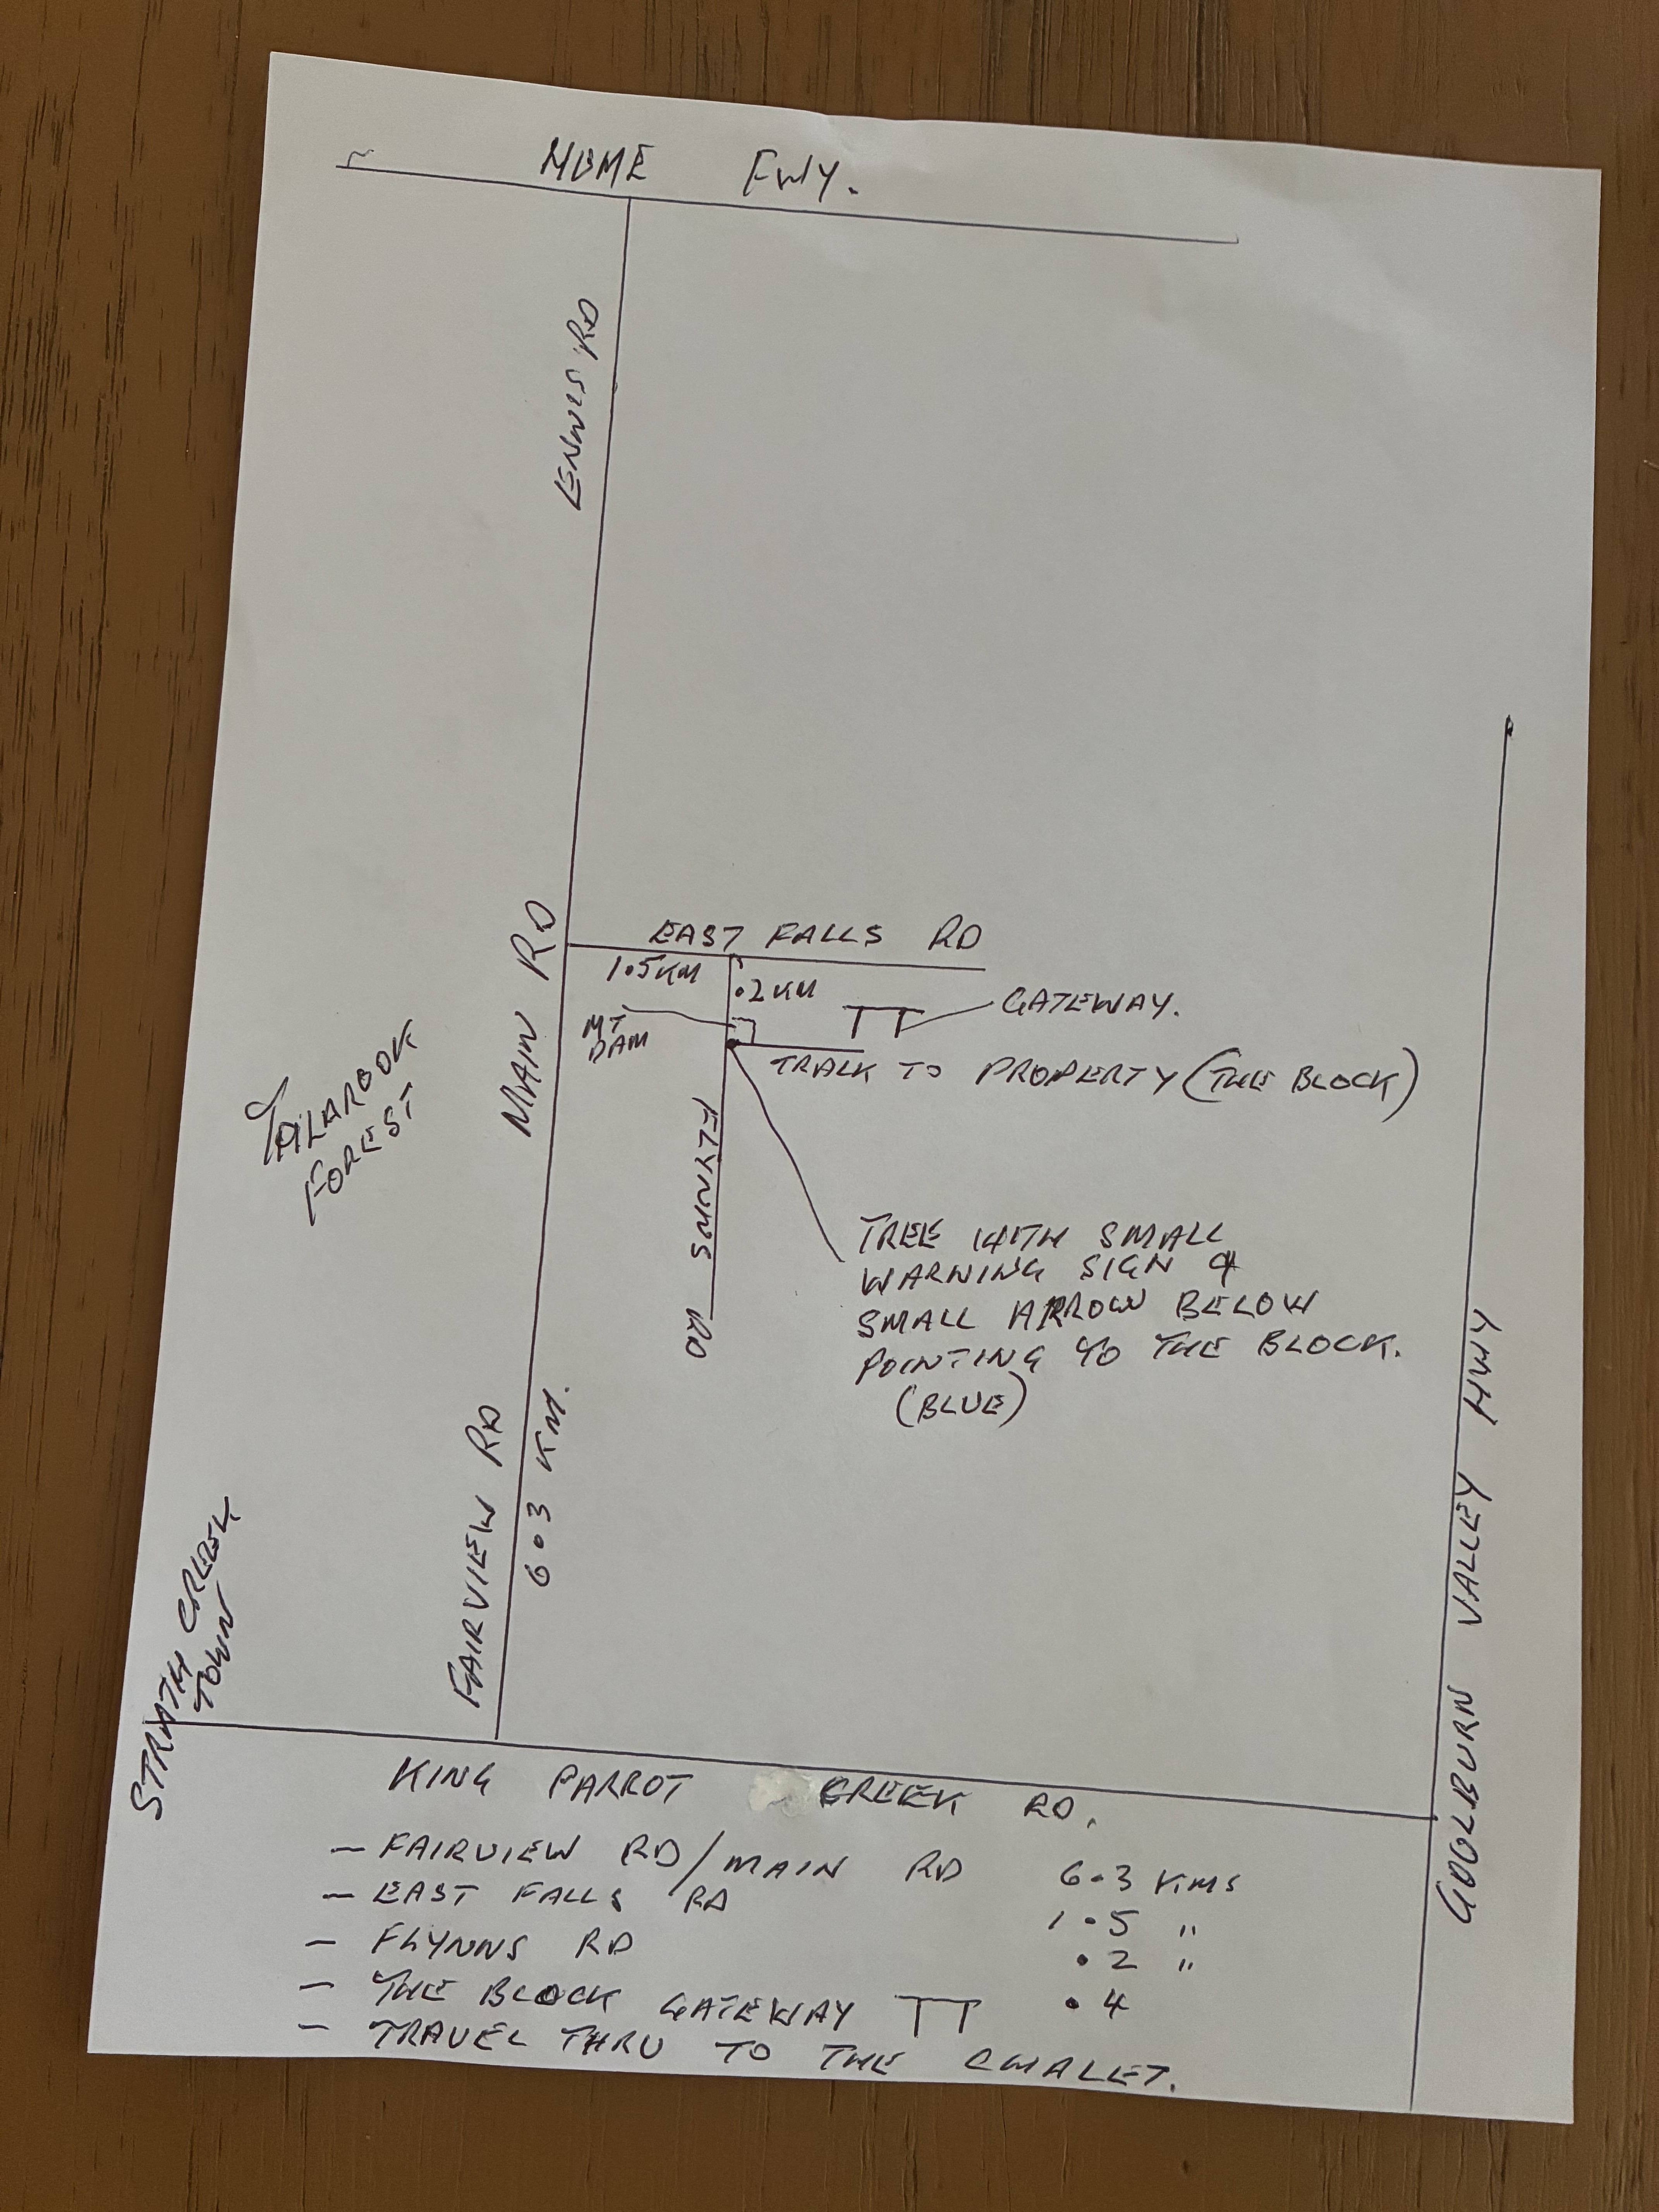 HUME FWY.
LENNIS RD
MAIN RD
EAST FALLS RD
1.5KM
.2KM
GATEWAY.
MT
DAM
TRALK TO PROPERTY (THE BLOCK)
FLYNNS RD
TALLAROOK
FOREST
TREE WITH SMALL
WARNING SIGN &
SMALL ARROW BELOW
POINTING TO THE BLOCK.
(BLUE)
FAIRVIEW RD
6.3 KM.
STRATH CREEK
TOWN
GOULBURN VALLEY HWY
KING PARROT CREEK RD.
- FAIRVIEW RD/MAIN RD 6.3 KMS
- EAST FALLS RD 1.5 "
- FLYNNS RD .2 "
- THE BLOCK GATEWAY .4
- TRAVEL THRU TO THE CHALET.